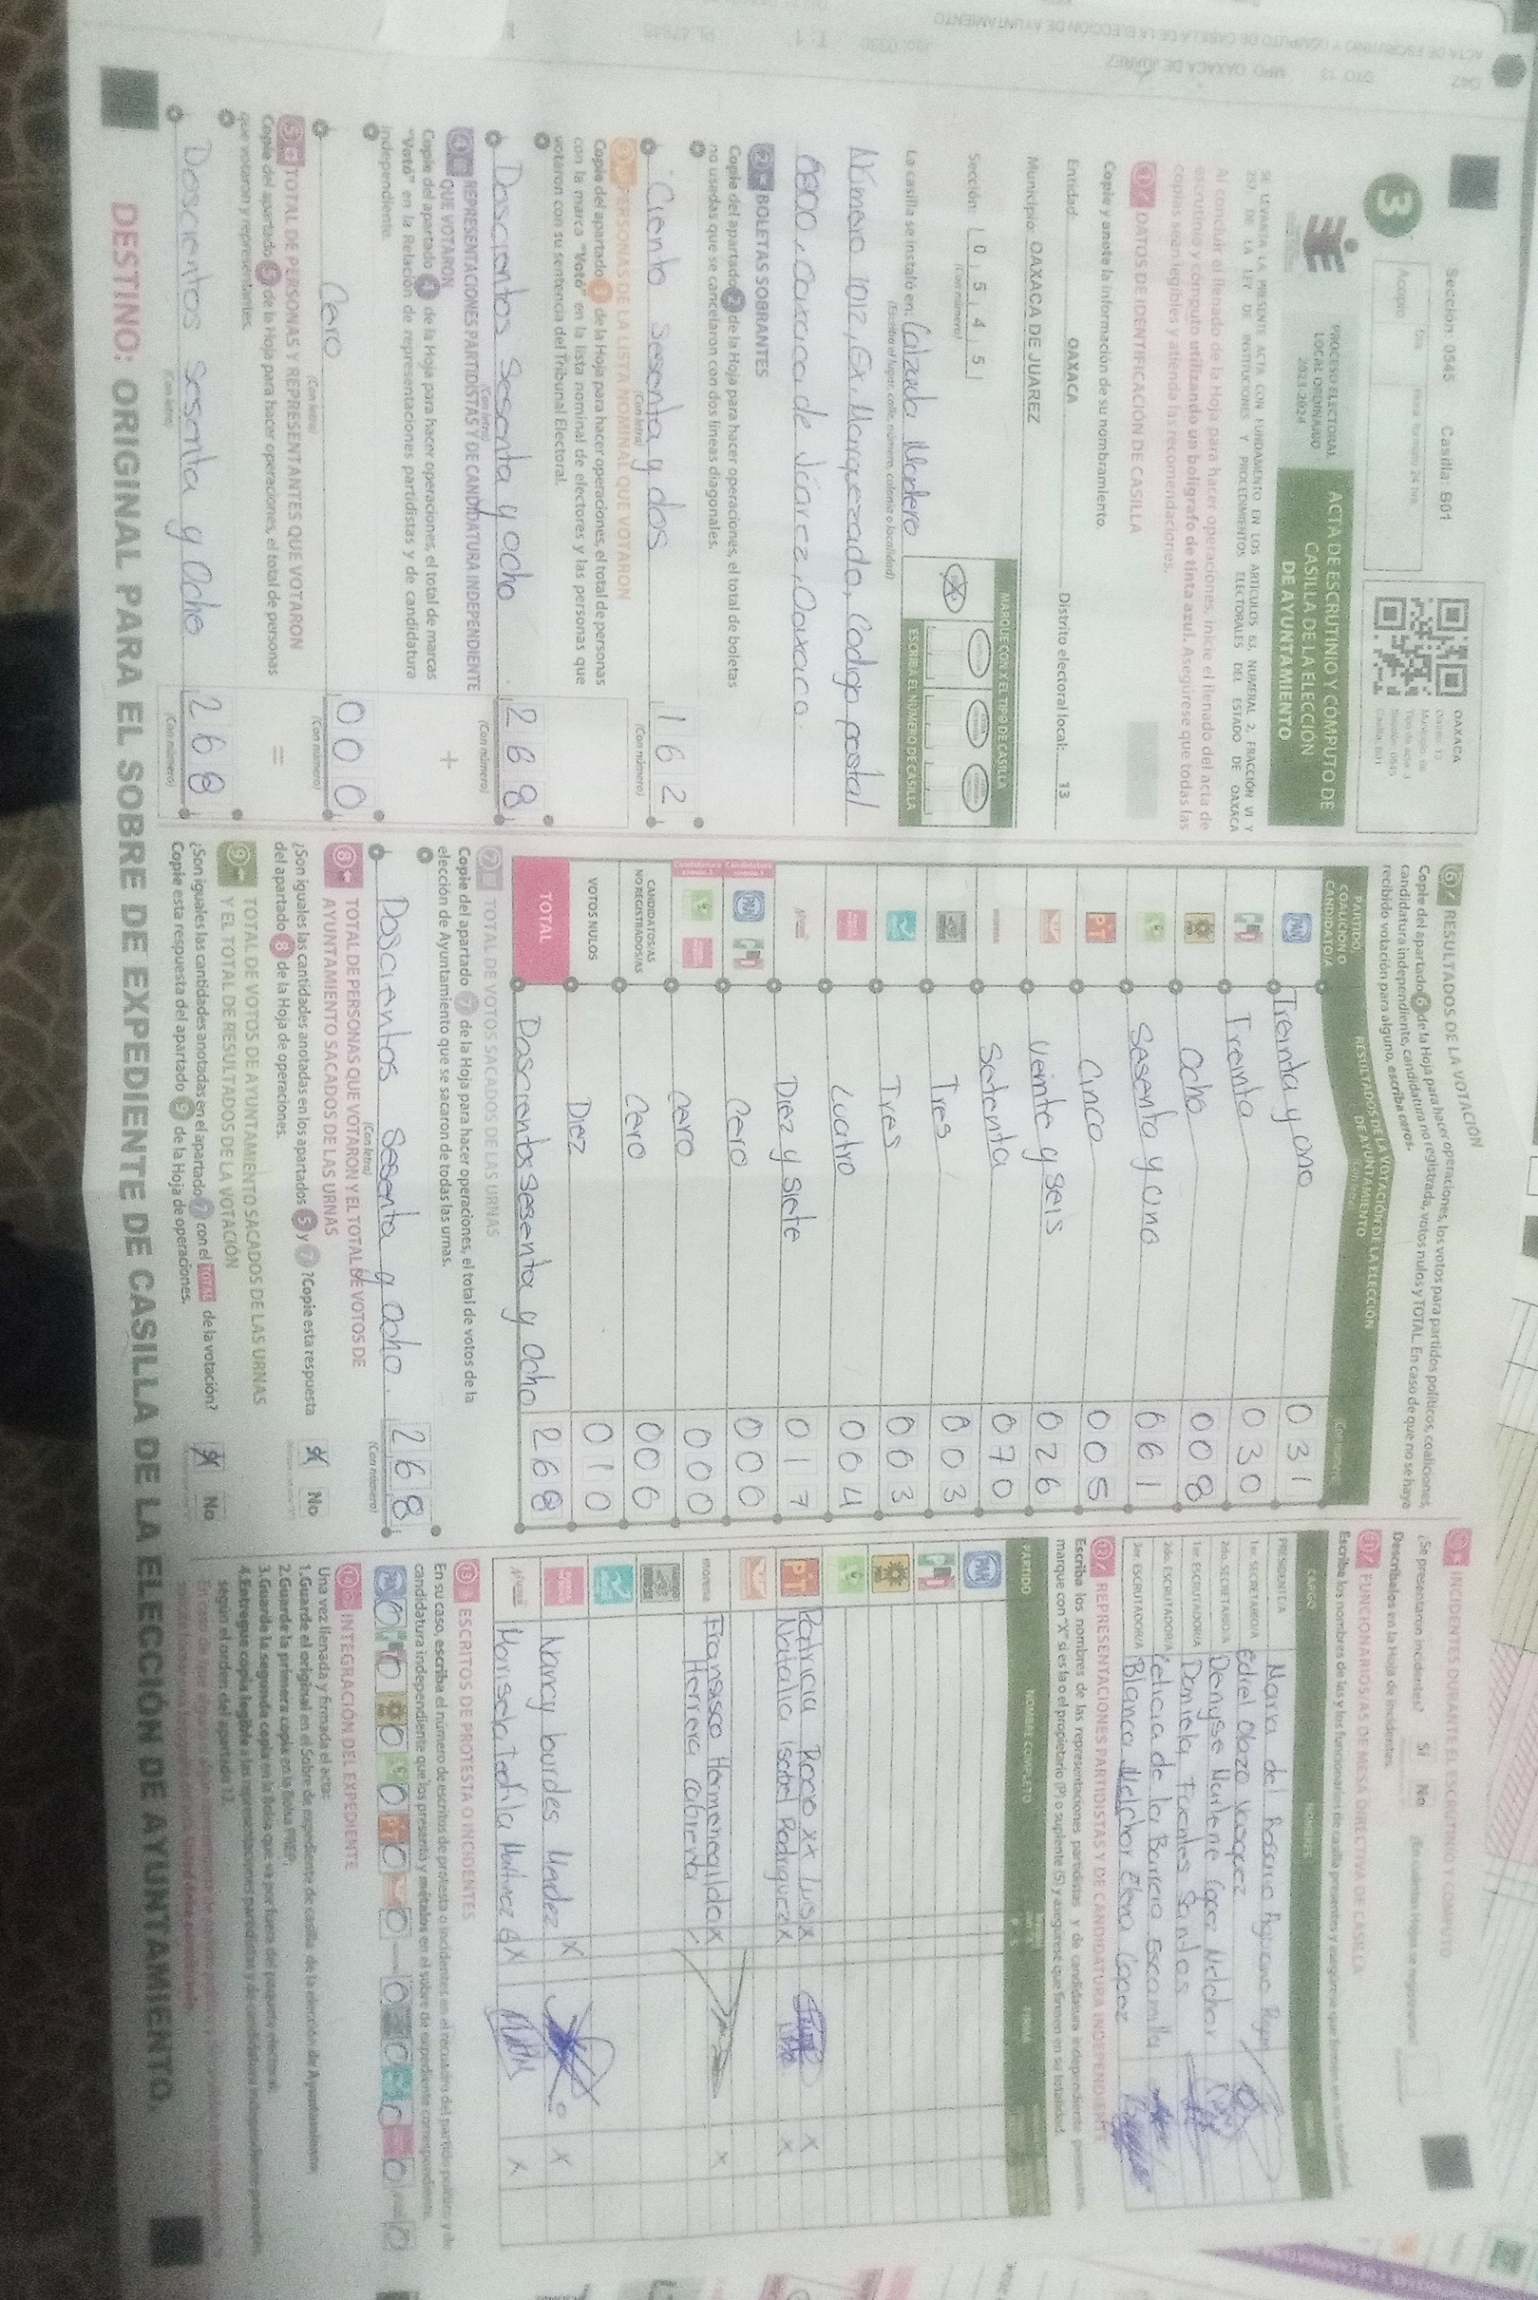 Sección: 0545 Casilla: B01
3
PROCESO ELECTORAL
LOCAL ORDINARIO
2023-2024
ACTA DE ESCRUTINIO Y CÓMPUTO DE
CASILLA DE LA ELECCIÓN
DE AYUNTAMIENTO
OAXACA
SE LEVANTA LA PRESENTE ACTA CON FUNDAMENTO EN LOS ARTÍCULOS 63, NUMERAL 2, FRACCIÓN VI Y
257, DE LA LEY DE INSTITUCIONES Y PROCEDIMIENTOS ELECTORALES DEL ESTADO DE OAXACA
Al concluir el llenado de la Hoja para hacer operaciones, inicie el llenado del acta de
escrutinio y cómputo utilizando un bolígrafo de tinta azul. Asegúrese que todas las
copias sean legibles y atienda las recomendaciones.
1 DATOS DE IDENTIFICACIÓN DE CASILLA
Copie y anote la información de su nombramiento.
Entidad: OAXACA Distrito electoral local: 13
Municipio: OAXACA DE JUAREZ
Sección: 0 5 4 5
(Con número)
MARQUE CON X EL TIPO DE CASILLA
ESCRIBA EL NÚMERO DE CASILLA
La casilla se instaló en: Calzada Madero
(Escriba el lugar, calle, número, colonia o localidad)
Número 1012, Ex. Marquezado, Codigo postal
68000, Oaxaca de Júarez, Oaxaca.
2 BOLETAS SOBRANTES
Copie del apartado 2 de la Hoja para hacer operaciones, el total de boletas
no usadas que se cancelaron con dos líneas diagonales.
Ciento sesenta y dos 162
(Con letra) (Con número)
3 PERSONAS DE LA LISTA NOMINAL QUE VOTARON
Copie del apartado 3 de la Hoja para hacer operaciones, el total de personas
con la marca "Votó" en la lista nominal de electores y las personas que
votaron con su sentencia del Tribunal Electoral.
Doscientos Sesenta y ocho 268
(Con letra) (Con número)
4 REPRESENTACIONES PARTIDISTAS Y DE CANDIDATURA INDEPENDIENTE
QUE VOTARON
Copie del apartado 4 de la Hoja para hacer operaciones, el total de marcas
"Votó" en la Relación de representaciones partidistas y de candidatura
independiente.
+
Cero 000
(Con letra) (Con número)
5 TOTAL DE PERSONAS Y REPRESENTANTES QUE VOTARON
Copie del apartado 5 de la Hoja para hacer operaciones, el total de personas
que votaron y representantes.
=
Doscientos sesenta y Ocho 268
(Con letra) (Con número)
6 RESULTADOS DE LA VOTACIÓN
Copie del apartado 6 de la Hoja para hacer operaciones, los votos para partidos políticos, coaliciones,
candidatura independiente, candidatura no registrada, votos nulos y TOTAL. En caso de que no se haya
recibido votación para alguno, escriba ceros.
PARTIDO,
COALICIÓN O
CANDIDATO/A
RESULTADOS DE LA VOTACIÓN DE LA ELECCIÓN
DE AYUNTAMIENTO
PAN Treinta y uno 031
Treinta 030
Ocho 008
Sesenta y uno 061
PT Cinco 005
Veinte y seis 026
morena Setenta 070
Tres 003
Tres 003
Cuatro 004
Diez y siete 017
PAN Cero 000
Cero 000
CANDIDATOS/AS
NO REGISTRADOS/AS Cero 000
VOTOS NULOS Diez 010
TOTAL Doscientos Sesenta y ocho 268
7 TOTAL DE VOTOS SACADOS DE LAS URNAS
Copie del apartado 7 de la Hoja para hacer operaciones, el total de votos de la
elección de Ayuntamiento que se sacaron de todas las urnas.
Doscientos sesenta y ocho. 268
(Con letra) (Con número)
8 TOTAL DE PERSONAS QUE VOTARON Y EL TOTAL DE VOTOS DE
AYUNTAMIENTO SACADOS DE LAS URNAS
¿Son iguales las cantidades anotadas en los apartados 5 y 7? Copie esta respuesta
del apartado 8 de la Hoja de operaciones.
Sí No
9 TOTAL DE VOTOS DE AYUNTAMIENTO SACADOS DE LAS URNAS
Y EL TOTAL DE RESULTADOS DE LA VOTACIÓN
¿Son iguales las cantidades anotadas en el apartado 7 con el TOTAL de la votación?
Copie esta respuesta del apartado 9 de la Hoja de operaciones.
Sí No
INCIDENTES DURANTE EL ESCRUTINIO Y CÓMPUTO
¿Se presentaron incidentes? Sí No
Descríbalos en la Hoja de incidentes.
11 FUNCIONARIOS/AS DE MESA DIRECTIVA DE CASILLA
CARGO NOMBRES
PRESIDENTE/A Maria del Rosario
1er. SECRETARIO/A Edriel Olazo Vasquez
2do. SECRETARIO/A Denysse Marlene Lopez Melchor
1er. ESCRUTADOR/A Daniela Fuentes Santos
2do. ESCRUTADOR/A Leticia de la Barrera Escamilla
3er. ESCRUTADOR/A Blanca Melchor Elena Lopez
12 REPRESENTACIONES PARTIDISTAS Y DE CANDIDATURA INDEPENDIENTE
Escriba los nombres de las representaciones partidistas y de candidatura independiente presentes,
marque con "X" si es la o el propietario (P) o suplente (S) y asegúrese que firmen en su totalidad.
PARTIDO NOMBRE COMPLETO FIRMA
PAN
PT Patricia Rocio xx Luis X X
Natalia Isabel Rodriguez X X
morena Fransisco Hermenegildo X X
Herrera Cabrera
Nancy burdes Mendez X X
Marisela Teofila Martinez X X
13 ESCRITOS DE PROTESTA O INCIDENTES
En su caso, escriba el número de escritos de protesta o incidentes en el recuadro del partido político y de
candidatura independiente que los presentó y métalos en el sobre de expediente correspondiente.
INTEGRACIÓN DEL EXPEDIENTE
Una vez llenada y firmada el acta:
1. Guarde el original en el Sobre de expediente de casilla de la elección de Ayuntamiento;
2. Guarde la primera copia en la Bolsa PREP;
3. Guarde la segunda copia en la Bolsa que va por fuera del paquete electoral;
4. Entregue copia legible a las representaciones partidistas y de candidatura independiente presentes,
según el orden del apartado 12.
DESTINO: ORIGINAL PARA EL SOBRE DE EXPEDIENTE DE CASILLA DE LA ELECCIÓN DE AYUNTAMIENTO.